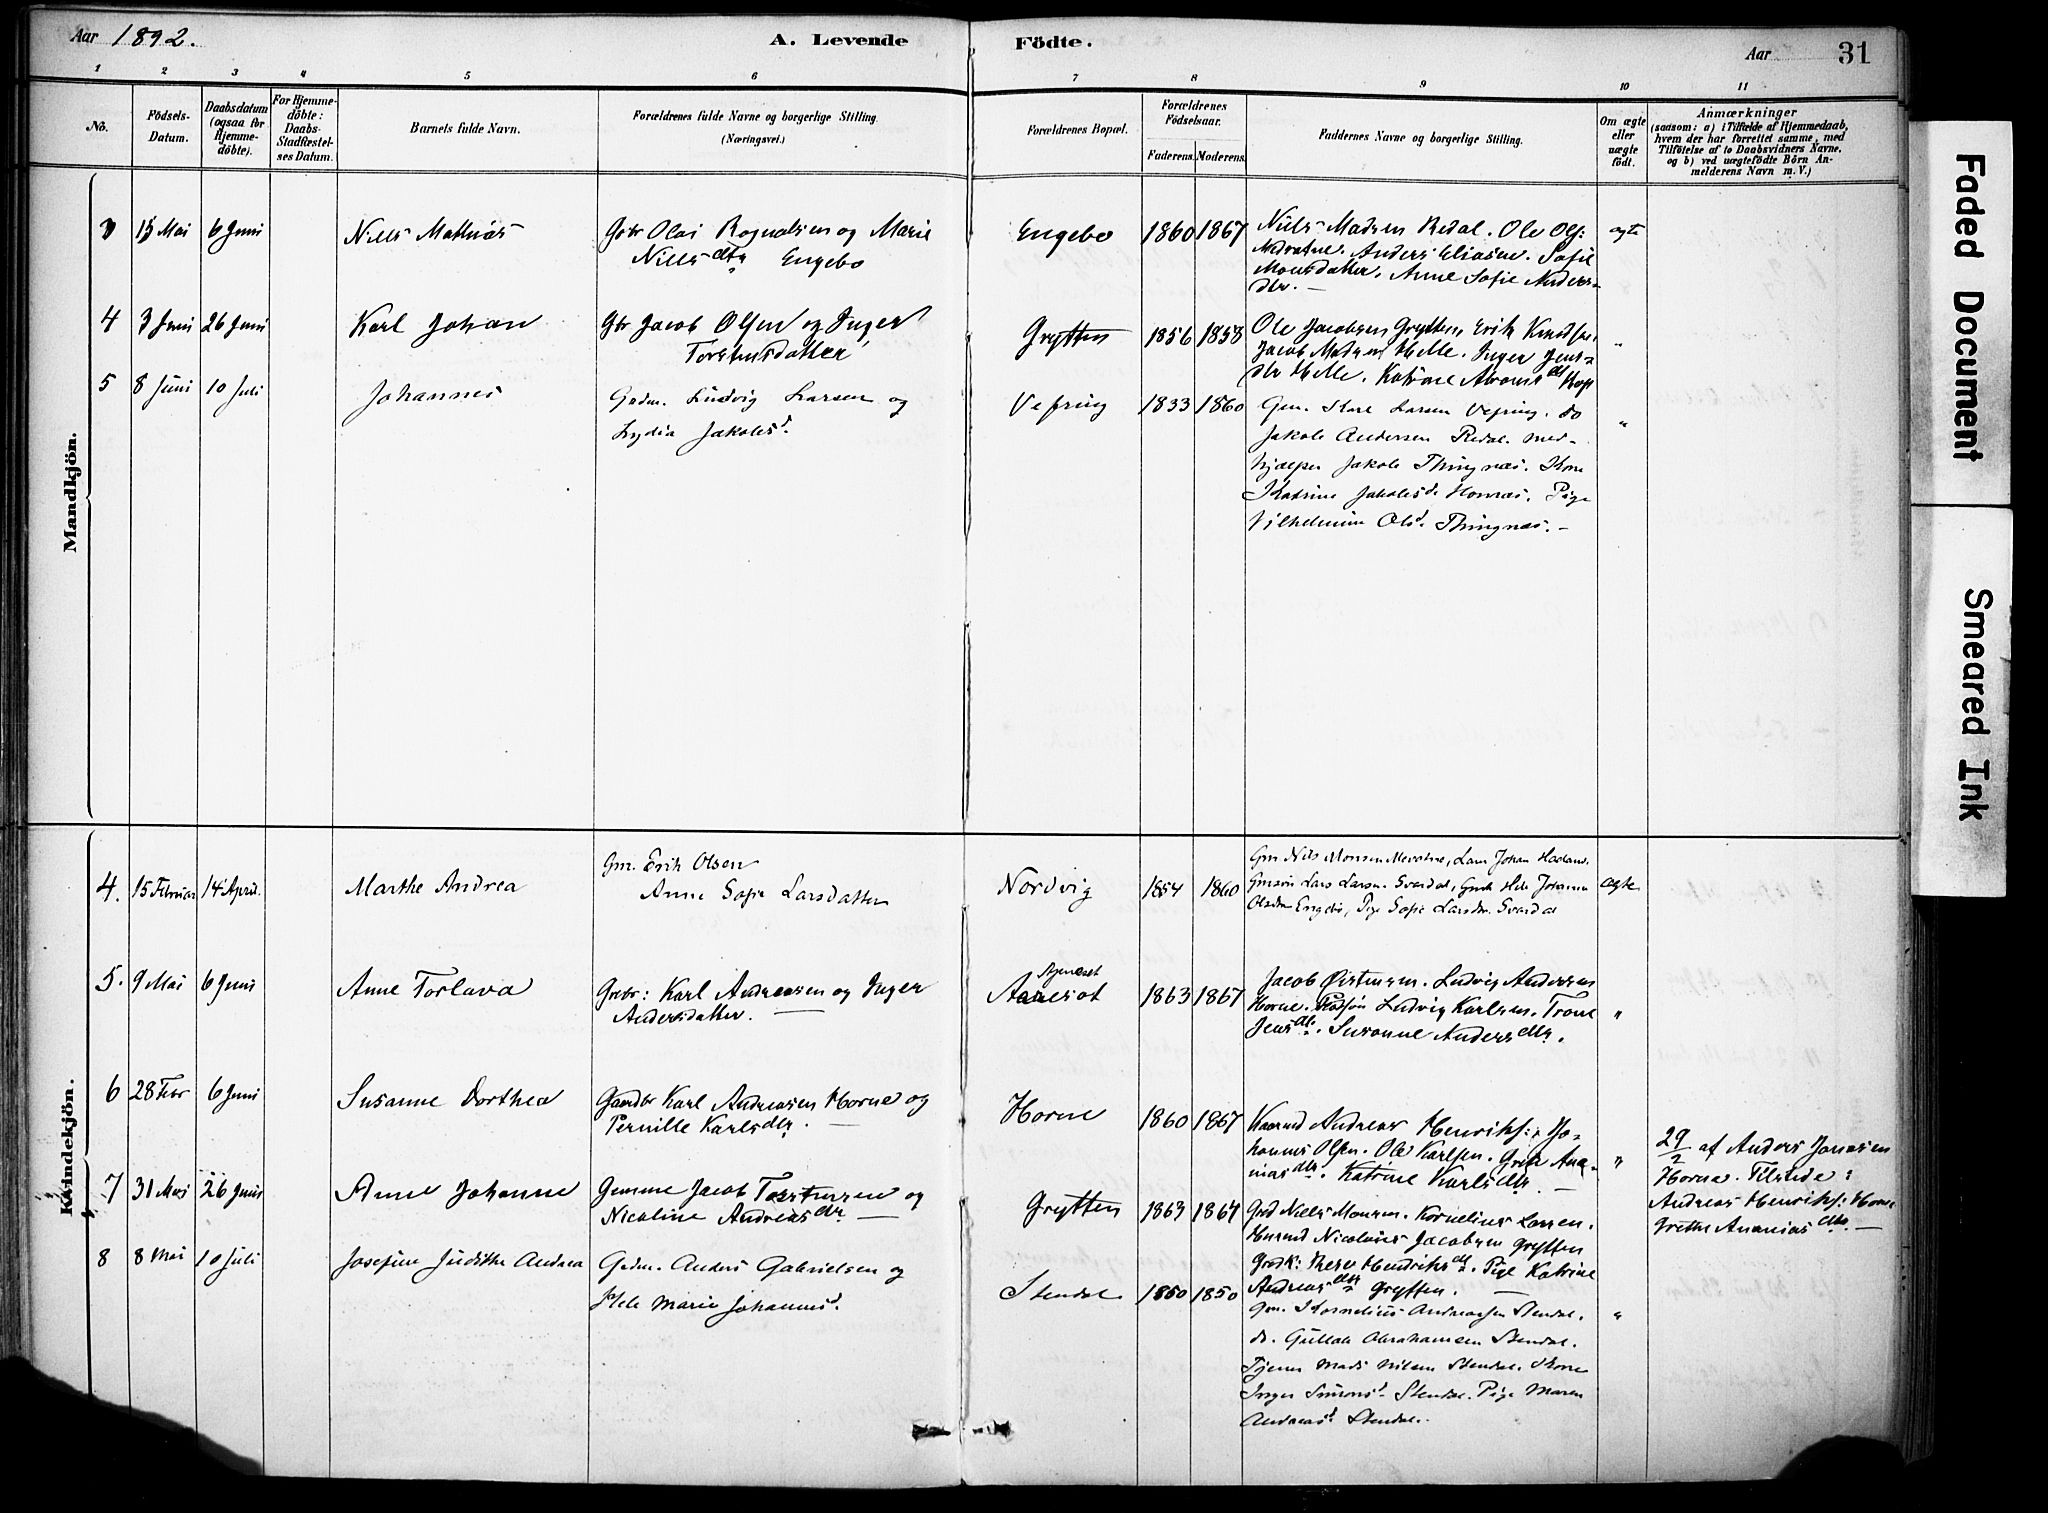 Aar 1892.
A. Levende Födte.
Aar 31
1 2 3 4 5 6 7 8 9 10 11
No.
Födsels-
Datum.
Daabsdatum
(ogsaa for
Hjemme-
döbte).
For Hjemme-
döbte:
Daabs-
Stadfæstel-
ses Datum.
Barnets fulde Navn.
Forældrenes fulde Navne og borgerlige Stilling.
(Næringsvei.)
Forældrenes Bopæl.
Forældrenes
Födselsaar.
Faderens. Moderens.
Faddernes Navne og borgerlige Stilling.
Om ægte
eller
uægte
födt.
Anmærkninger
(saasom: a) i Tilfælde af Hjemmedaab,
hvem der har forrettet samme, med
Tilföielse af to Daabsvidners Navne,
og b) ved uægtefödte Börn An-
melderens Navn m. V.)
Mandkjön.
3 15 Mai 6 Juni Nills Mathias
Gbr Olai Rognalsen og Marie
Nills dtr Engebo
Engebo 1860 1867
Niels Madsen Redal. Ole Ols:
Anders Eliasen. Sofie
Monsdatter. Anne Sofie Anders-
dtr. —
ægte
4 3 Juni 26 Juni Karl Johan
Gbr Jacob Olsen og Inger
Torstensdatter
Grytten 1856 1858
Ole Jacobsen Grytten, Erik Knudsen.
Jacob Madsen Helle. Inger Jens-
dtr Helle. Katrine
"
5 8 Juni 10 Juli Johannes
Gadm. Ludvig Larsen og
Lydia Jakobsd.
Vefring 1833 1860
Gm. Kare Larsen Vefring. do
Jakob Andersen Redal. med-
hjælper Jakob Thingnæs. Kone
Katrine Jakobsd. Hornæs. Pige
Vilhelmine Olsd. Thingnæs. —
"
Kvindekjön.
4. 15 Februar 14 April. Marthe Andrea
Gm. Erik Olsen
Anne Sofie Larsdatter
Nordvig 1854 1860
Gm Nils Monsen Johan
Gmsøn Lars Larsen Svardal, Johanne
Olsdtr Engebø, Pige Sofie Larsdtr. Svardal
ægte
5. 9 Mai 6 Juni Anne Torlava
Grbr: Karl Andreasen og Inger
Andersdatter. —
Aareset 1863 1867
Jacob Ludvig Andersen
Horne. Ludvig Karlsen. Trone
Jens dtr. Susanne Anders dtr.
"
6 28 Febr 6 Juni Susanne Dorthea
Gaardbr Karl Andreasen Horne og
Pernille Karls dtr. —
Horne 1860 1867
Andreas Henriks: Jo-
hannes Olsen. Ole Karlsen. Grete Ana-
nias dtr. Katrine Karls dtr. —
"
29/2 af Anders Jonasen
Horne. Tilstede:
Andreas Henriks: Horne
Grethe Ananias dtr. —
7 31 Mai 26 Juni Anne Johanne
Gmme Jacob Torstensen og
Nicoline Andreas dtr. —
Grytten 1863 1864
Niels Monsen. Kornelius Larsen.
Nicolai Jacobsen Grytten
Hendriks dtr. Pige Katrine
Andreas dtr Grytten. —
8 8 Mai 10 Juli Josefine Judithe Andrea
Gadm. Anders Gabrielsen og
Marie Johannesd.
Stendal 1850 1850
Gm. Kornelius Andreassen Stendal.
do. Gullak Abrahamsen Stendal.
Tjener Mads Nilsen Stendal. Kone
Inger Simonsd. Stendal. Pige Maren
Andreasd. Stendal.
"
Faded Document
Smeared Ink